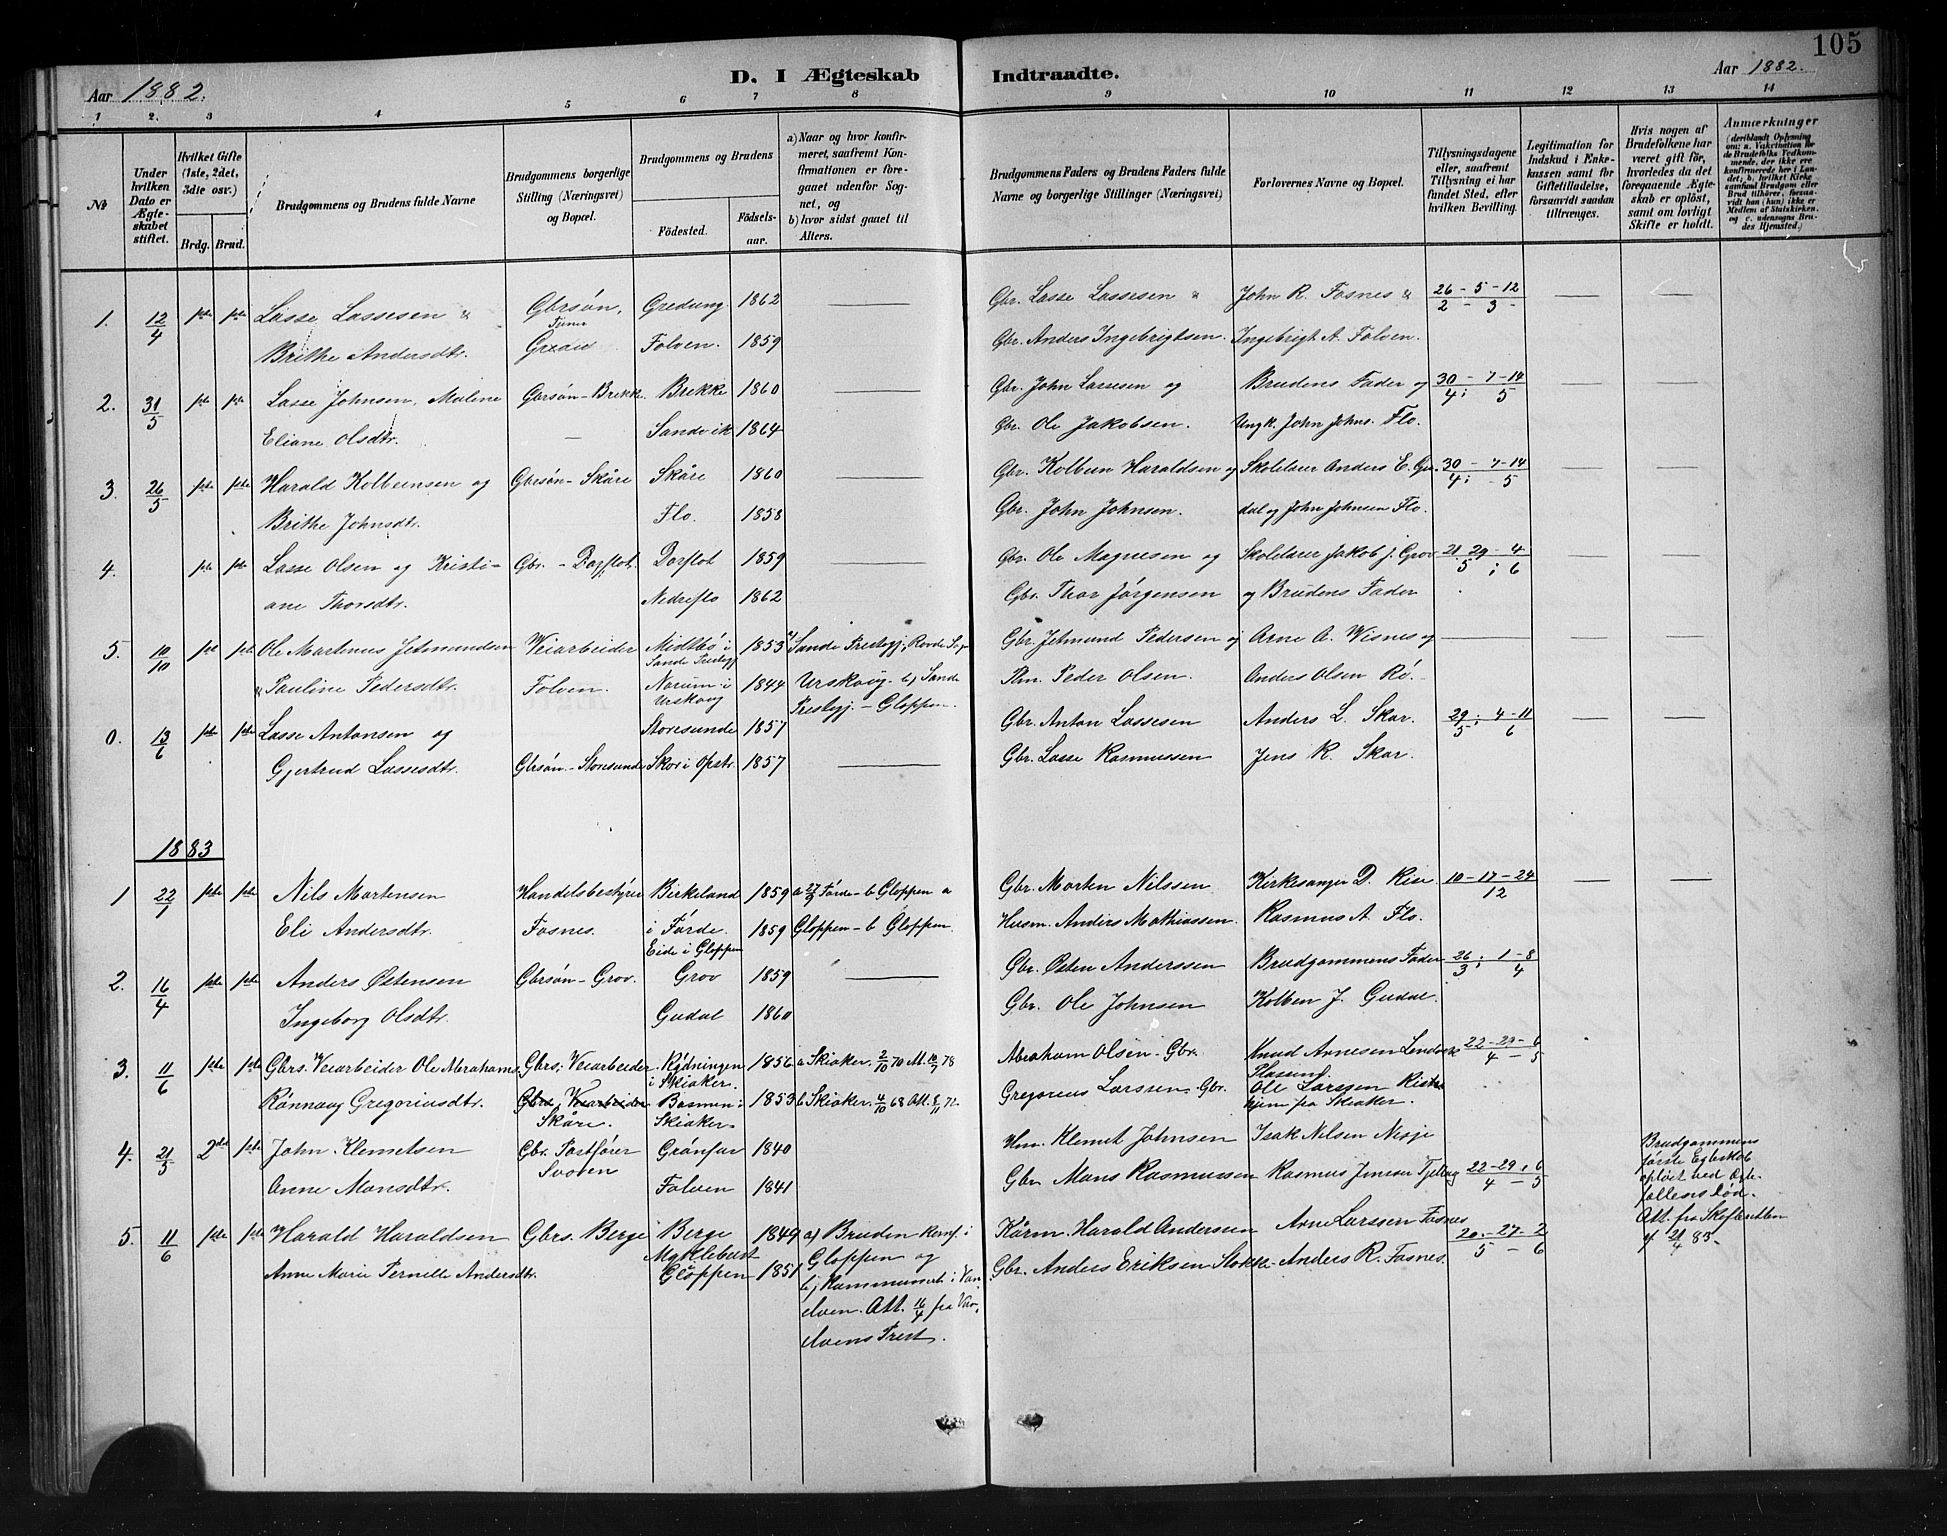 105
Aar 1882.
D. I Ægteskab Indtraadte.
Aar 1882.
1 2. 3 4 5 6 7 8 9 10 11 12 13 14
No
Under hvilken Dato er Ægteskabet stiftet.
Hvilket Gifte (1ste, 2det, 3die osv.)
Brdg. Brud.
Brudgommens og Brudens fulde Navne
Brudgommens borgerlige Stilling (Næringsvei) og Bopæl.
Brudgommens og Brudens
Födested. Födselsaar.
a) Naar og hvor konfirmeret, saafremt Konfirmationen er foregaaet udenfor Sognet, og
b) hvor sidst gaaet til Alters.
Brudgommens Faders og Brudens Faders fulde Navne og borgerlige Stillinger (Næringsvei)
Forlovernes Navne og Bopæl.
Tillysningsdagene eller, saafremt Tillysning ei har fundet Sted, efter hvilken Bevilling.
Legitimation for Indskud i Enkekassen samt for Giftetilladelse, forsaavidt saadan tiltrænges.
Hvis nogen af Brudefolkene har været gift för, hvorledes da det foregaaende Ægteskab er oplöst, samt om lovligt Skifte er holdt.
Anmærkninger
(deriblandt Oplysning om: a. Vakcination for de Brudefolks Vedkommende, der ikke ere konfirmerede her i Landet; b. hvilket Kirkesamfund Brudgom eller Brud tilhörer, forsaavidt han (hun) ikke er Medlem af Statskirken, og c. udensogns Brudes Hjemsted.)
1. 12/4 1ste 1ste Lasse Lassesen & Gbrsön, Gredung 1862 Gbr. Lasse Lassesen & John R. Fosnes & 26 - 5 - 12 / 2 - 3 -
Brithe Andersdtr. Folven. 1859 Gbr. Anders Ingebrigtsen. Ingebrigt A. Folven.
2. 31/5 1ste 1ste Lasse Johnsen, Malene Gbrsøn - Brekk. Brekke 1860 Gbr. John Lassesen og Brudens Fader og 30 - 7 - 14 / 4; 5
Eliane Olsdtr. Sandvik 1864 Gbr. Ole Jakobsen. Ungk. John Johns. Flo.
3. 26/5 1ste 1ste Harald Kolbeinsen og Gbrsøn - Skåre Skåre 1860 Gbr. Kolbein Haraldsen og Skolelærer Anders E. Gu- 30 - 7 - 14 / 4; - 5
Brithe Johnsdtr. Flo. 1858 Gbr. John Johnsen. dal og John Johnsen Flo.
4. 1ste 1ste Lasse Olsen og Kristi- Gbr. - Dorflot. Dorflot 1859 Gbr. Ole Magnesen og Skolelærer Jakob J. Grov 21. 29 - 4 / 5 ; 6
ane Thorsdtr. Nedreflo 1862 Gbr. Thor Jørgensen og Brudens Fader
5. 10/10 1ste 1ste Ole Martinus Jetmundsen Veiarbeider Midtbö i Sande Prestegj 1853 a) Sande Prestegj, Rovde Sogn Gbr. Jetmund Pedersen og Arne A. Wisnes og
& Pauline Pedersdtr. Folven. Norum i Urskoug 1844 Urskoug - b) Sande Plm. Peder Olsen. Anders Olsen Rö.
Prestegj. - Gloppen.
0. 13/6 1ste 1ste Lasse Antonsen og Storesunde 1857 Gbr. Anton Lassesen Anders L. Skar. 29 ; 4 - 11 / 5 6
Gjertrud Lassesdtr. Gbrsøn - Storesunde Skor i Opstr. 1857 Gbr. Lasse Rasmussen Jens R. Skar.
1883
1 22/1 1ste 1ste Nils Mortensen Handelsbestyrer Birkeland 1859 a 27/5 Förde - b Gloppen a Gbr. Morten Nilssen Kirkesanger D. Rise 10 - 17 - 24 / 12
Eli Andersdtr. Fosnes. i Förde. 1859 Gloppen - b Gloppen. Husm. Anders Mathiassen. Rasmus A. Flo.
Eide i Gloppen
2. 16/4 1ste 1ste Anders Østensen Gbrsön - Grov. Grov 1859 Gbr. Østen Anderssen Brudgommens Fader 26 ; 1 - 8 / 3 4
Ingeborg Olsdtr. Gudal 1860 Gbr. Ole Johnsen Kolben J. Gudal.
3. 11/6 1ste 1ste Gbrs. Veiarbeider Ole Abrahams. Gbrs. Veiarbeider Rydningen i Skiaker. 1856 a Skiaker. 2/10 70 At. 10/7 78 Abraham Olsen - Gbr. Knud Arnesen 22 - 29 - 6 / 4 - 5
Rönnaug Gregoriusdtr. Gbrs. Veiarbeider Skåre. Skiaker 1853 b Skiaker. 4/10 68 Att. 8/11 72. Gregoreus Larssen - Gbr. Ole Larssen
hjem fra Skiaker.
4. 21/5 2det 1ste John Klemetsen Gbr. Postförer Svoren Grönfur 1840 Hm. Klemet Johnsen Isak Nilsen Nesje
Anne Monsdtr. Folven 1841 Gbr. Mons Rasmussen Rasmus Jensen 22 - 29 , 6 / 4 - 5
Brudgommens
første Egteskab
opløst ved Ægte-
fællens død.
Att. fra Skifteretten
f. 21/4 83 -
5. 11/6 1ste 1ste Harald Haraldsen Gbrs. Berge Berge 1849 a) Bruden konf. i Kårm. Harald Anderssen Arne Larssen Fosnes 20. - 27 - 2 / 5 - 6
Anne Marie Pernelle Andersdtr. Myklebust Gloppen 1851 Gloppen og Gbr. Anders Eriksen Anders R. Fosnes.
b) Kommunseret i Van-
elven. Att. 16/4 fra Van-
elvens Prest.